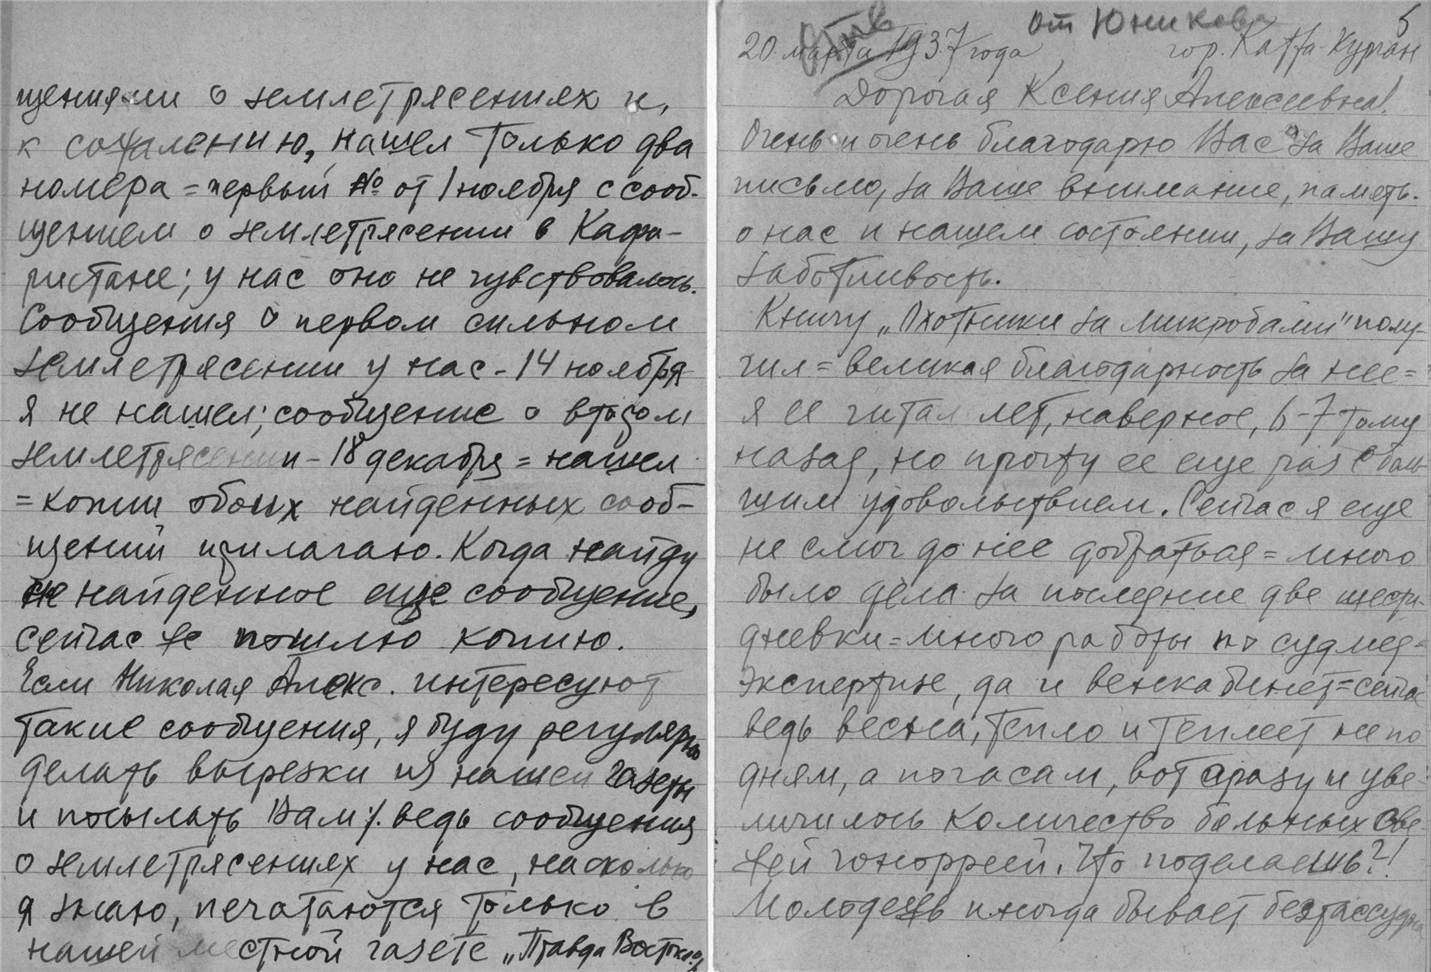 щениями о землетрясениях и,
к сожалению, нашел только два
номера = первый № от 1 ноября с сооб-
щением о землетрясении в Кафи-
ристане; у нас оно не чувствовалось.
Сообщения о первом сильном
землетрясении у нас - 14 ноября
я не нашел; сообщение о втором
землетрясении - 18 декабря = нашел
= копии обоих найденных сооб-
щений прилагаю. Когда найду
не найденное еще сообщение,
сейчас же пошлю копию.
Если Николая Алекс. интересуют
такие сообщения, я буду регулярно
делать вырезки из нашей газеты
и посылать Вам; ведь сообщения
о землетрясениях у нас, насколько
я знаю, печатаются только в
нашей местной газете „Правда Востока"
от Юникова 5
20 марта 1937 года гор. Катта-Курган
Дорогая Ксения Алексеевна!
Очень и очень благодарю Вас за Ваше
письмо, за Ваше внимание, память
о нас и нашем состоянии, за Вашу
заботливость.
Книгу „Охотники за микробами" полу-
чил = великая благодарность за нее =
я ее читал лет, наверное, 6-7 тому
назад, но прочту ее еще раз с боль-
шим удовольствием. Сейчас я еще
не смог до нее добраться = много
было дела за последние две шести-
дневки = много работы по судмед-
экспертизе, да и венкабинет = сейчас
ведь весна, тепло и теплеет не по
дням, а по часам, вот сразу и уве-
личилось количество больных све-
жей гонорреей. Что поделаешь?!
Молодежь иногда бывает безрассудна